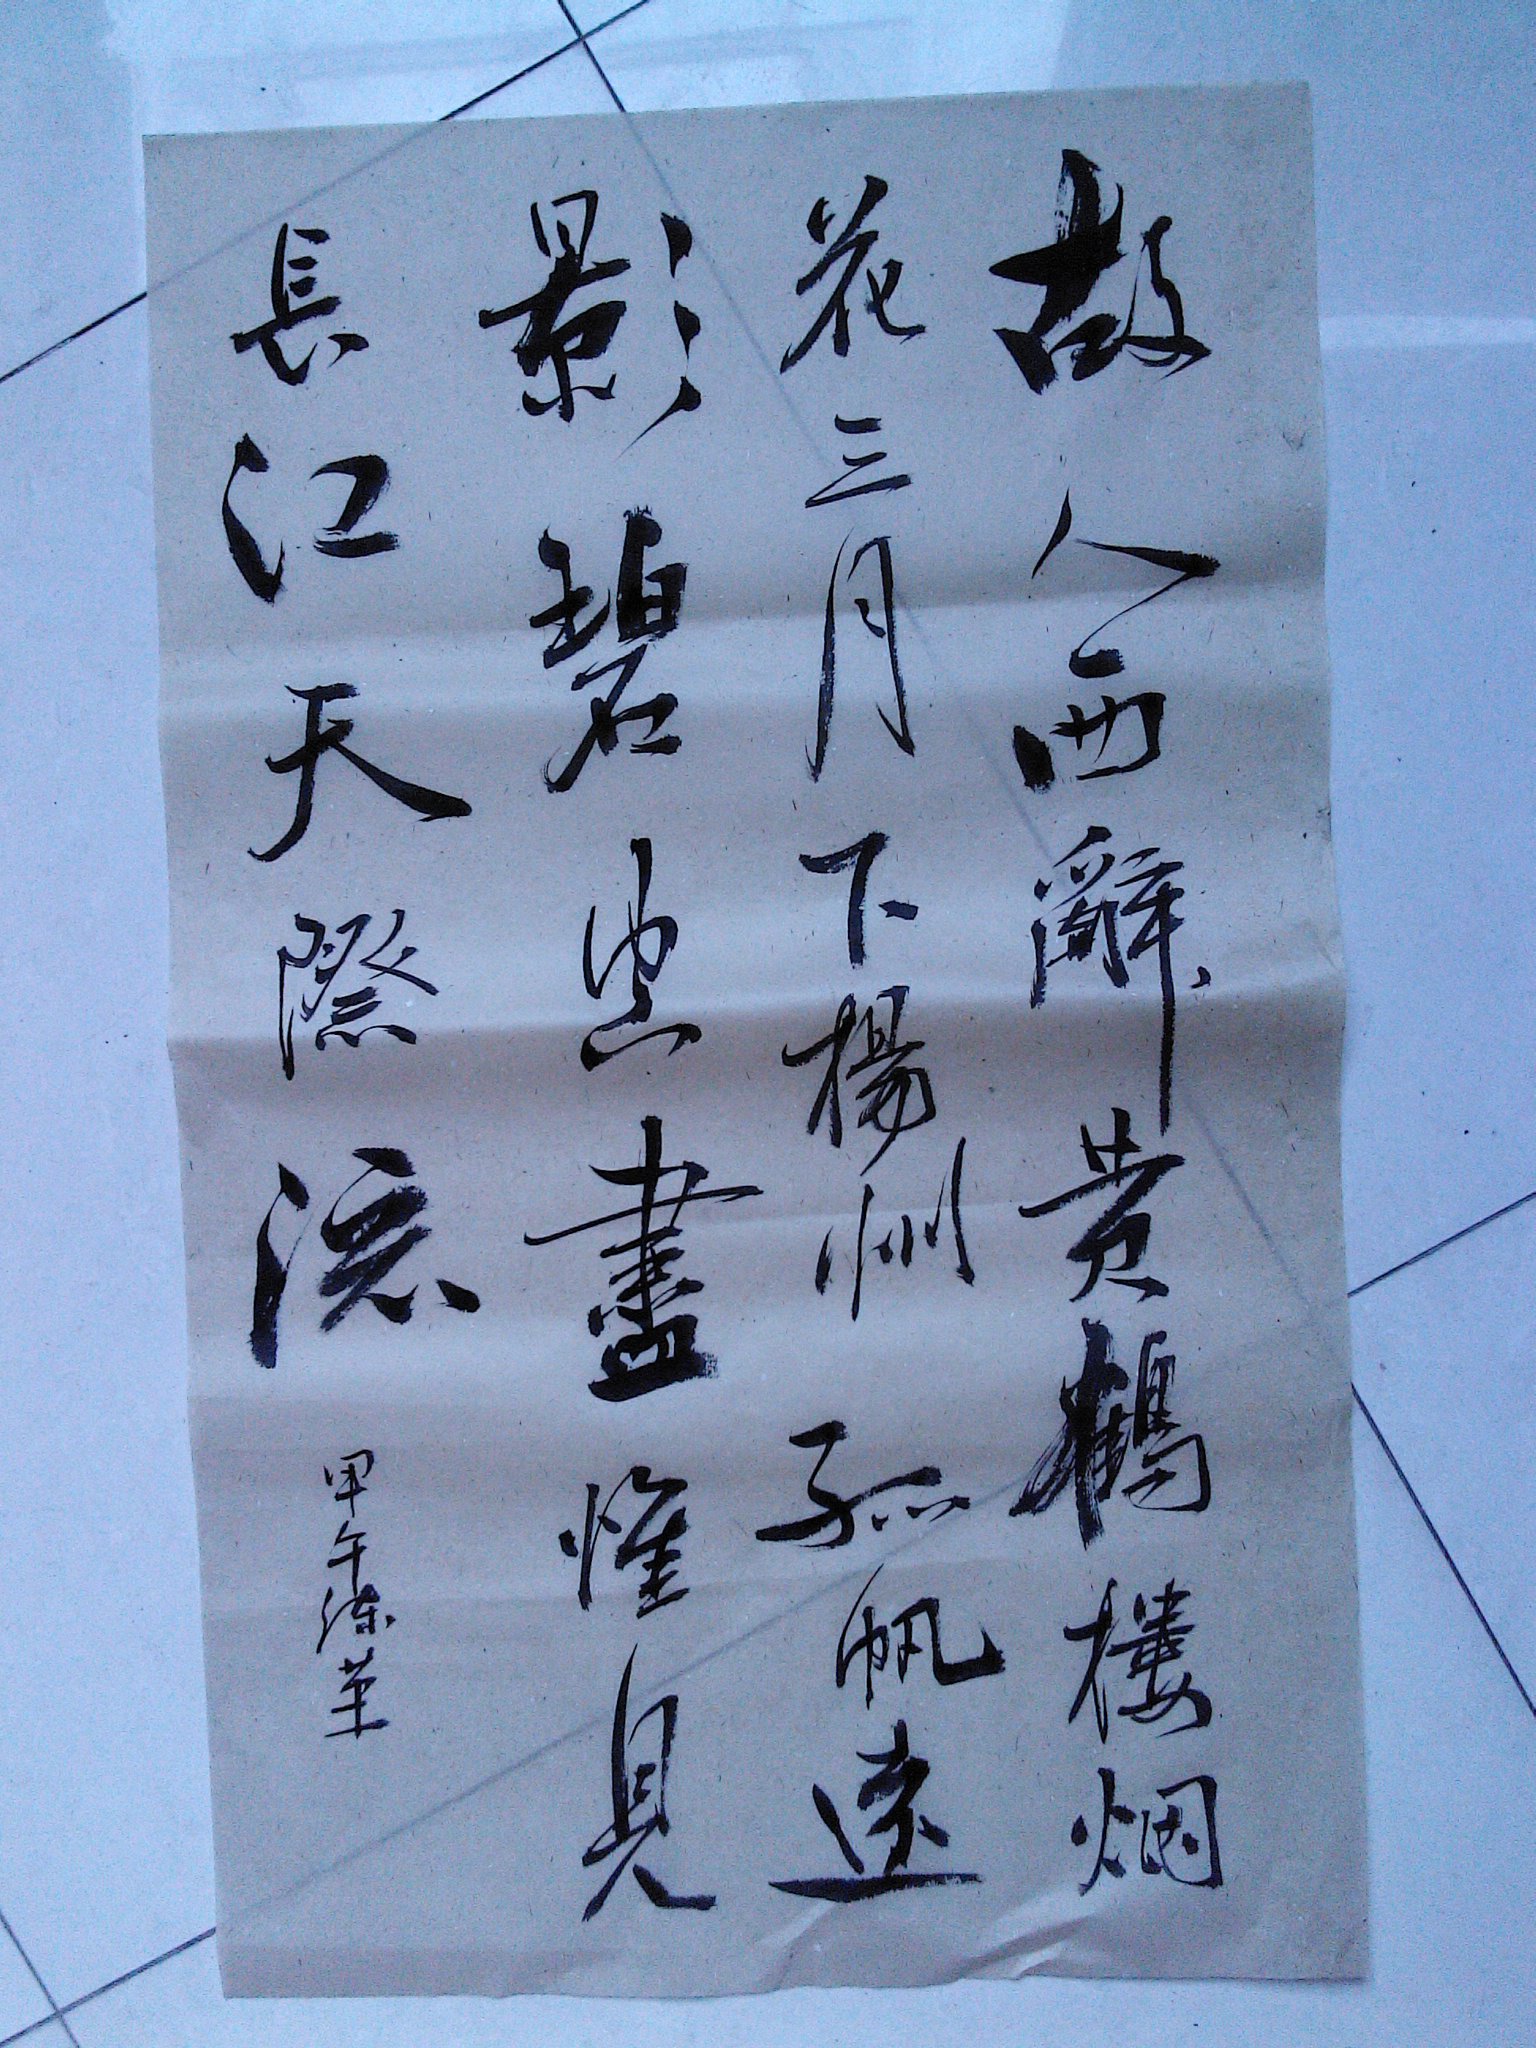 故人西辭黄鶴樓烟
花三月下揚州孤帆遠
影碧空盡惟見
長江天際流
甲午